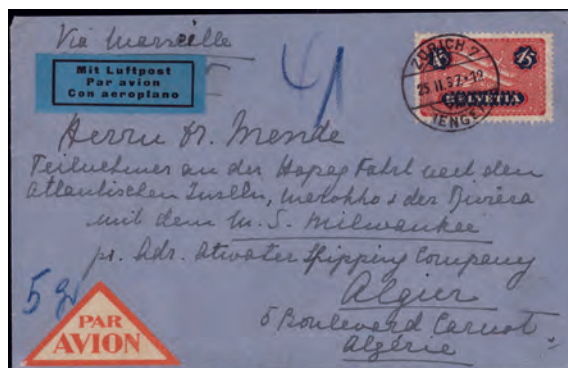 Via Marseille
Mit Luftpost
Par avion
Con aeroplano
45 45
HELVETIA
ZÜRICH 7
Herrn Dr. Mende
Teilnehmer an der Hapag Fahrt nach den
Atlantischen Inseln, Marokko & der Riviera
mit dem M. S. Milwaukee
pr. Adr. Atwater Shipping Company
Algier
6 Boulevard Carnot
Algérie
5 gr
PAR
AVION